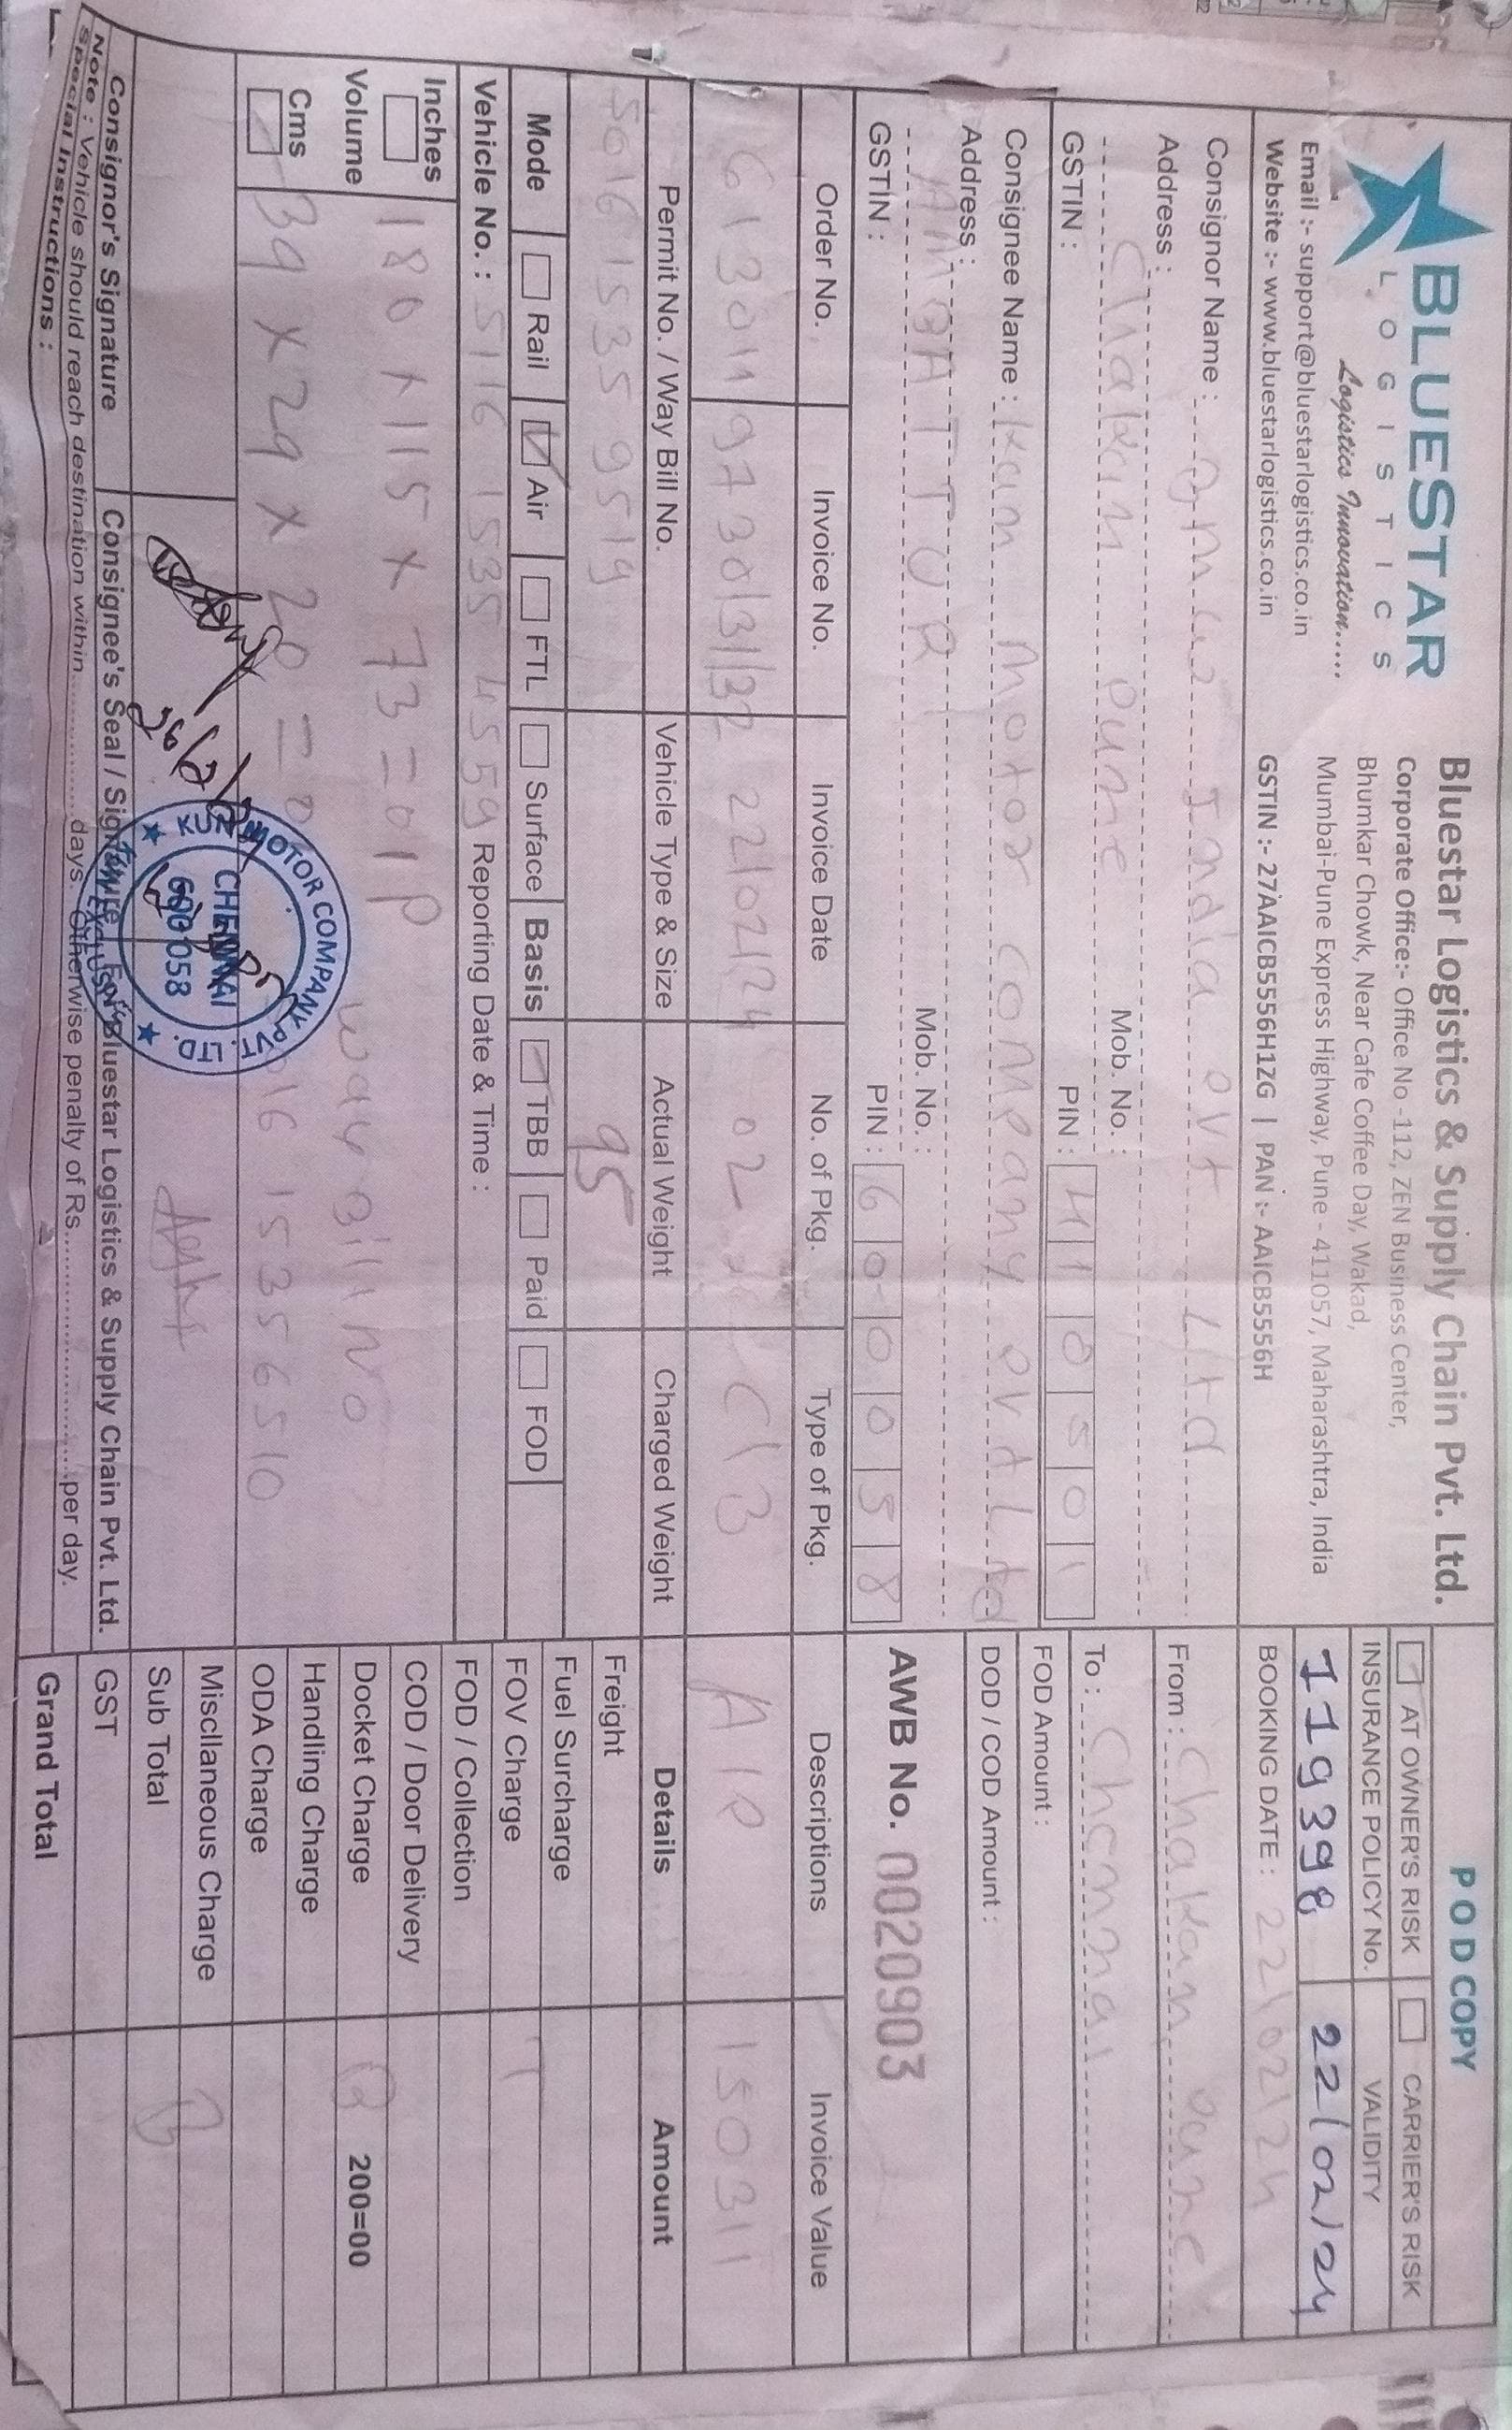 BLUESTAR
LOGISTICS
Logistics Innovation.....
Email :- support@bluestarlogistics.co.in
Website :- www.bluestarlogistics.co.in
Bluestar Logistics & Supply Chain Pvt. Ltd.
Corporate Office:- Office No -112, ZEN Business Center,
Bhumkar Chowk, Near Cafe Coffee Day, Wakad,
Mumbai-Pune Express Highway, Pune - 411057, Maharashtra, India
GSTIN :- 27AAICB5556H1ZG | PAN :- AAICB5556H
POD COPY
AT OWNER'S RISK CARRIER'S RISK
INSURANCE POLICY No. VALIDITY
119398 22/02/24
BOOKING DATE : 22\02\24
Consignor Name : India Pvt Ltd
Address :
Chakan Pune Mob. No. :
GSTIN : PIN : 410501
From : Chakan Pune
To : Chennai
FOD Amount :
DOD / COD Amount :
Consignee Name : Kun Motor Company Pvt Ltd
Address :
AMBATTUR Mob. No. :
GSTIN : PIN : 600058
AWB No. 0020903
Order No. Invoice No. Invoice Date No. of Pkg. Type of Pkg. Descriptions Invoice Value
613011 9730/31/32 22/02/24 02 C\B 150311
Permit No. / Way Bill No. Vehicle Type & Size Actual Weight Charged Weight Details Amount
5016 1535 9519 95
Freight
Fuel Surcharge
FOV Charge T
FOD / Collection
COD / Door Delivery
Docket Charge B 200=00
Handling Charge
ODA Charge
Miscllaneous Charge B
Sub Total
GST
Grand Total
Mode Rail Air FTL Surface Basis TBB Paid FOD
Vehicle No. : 5116 1535 4559 Reporting Date & Time :
Inches
Volume
Cms
180 x 115 x 73 = 01 P
Way Bill No
39 x 29 x 20 =
16 15356510
KUN MOTOR COMPANY PVT. LTD.
CHENNAI
600 058
KUN EXCLUSIVE
26/2/
Consignor's Signature Consignee's Seal / Signature For Bluestar Logistics & Supply Chain Pvt. Ltd.
Note : Vehicle should reach destination within..................days. Otherwise penalty of Rs..............................per day.
Special Instructions :